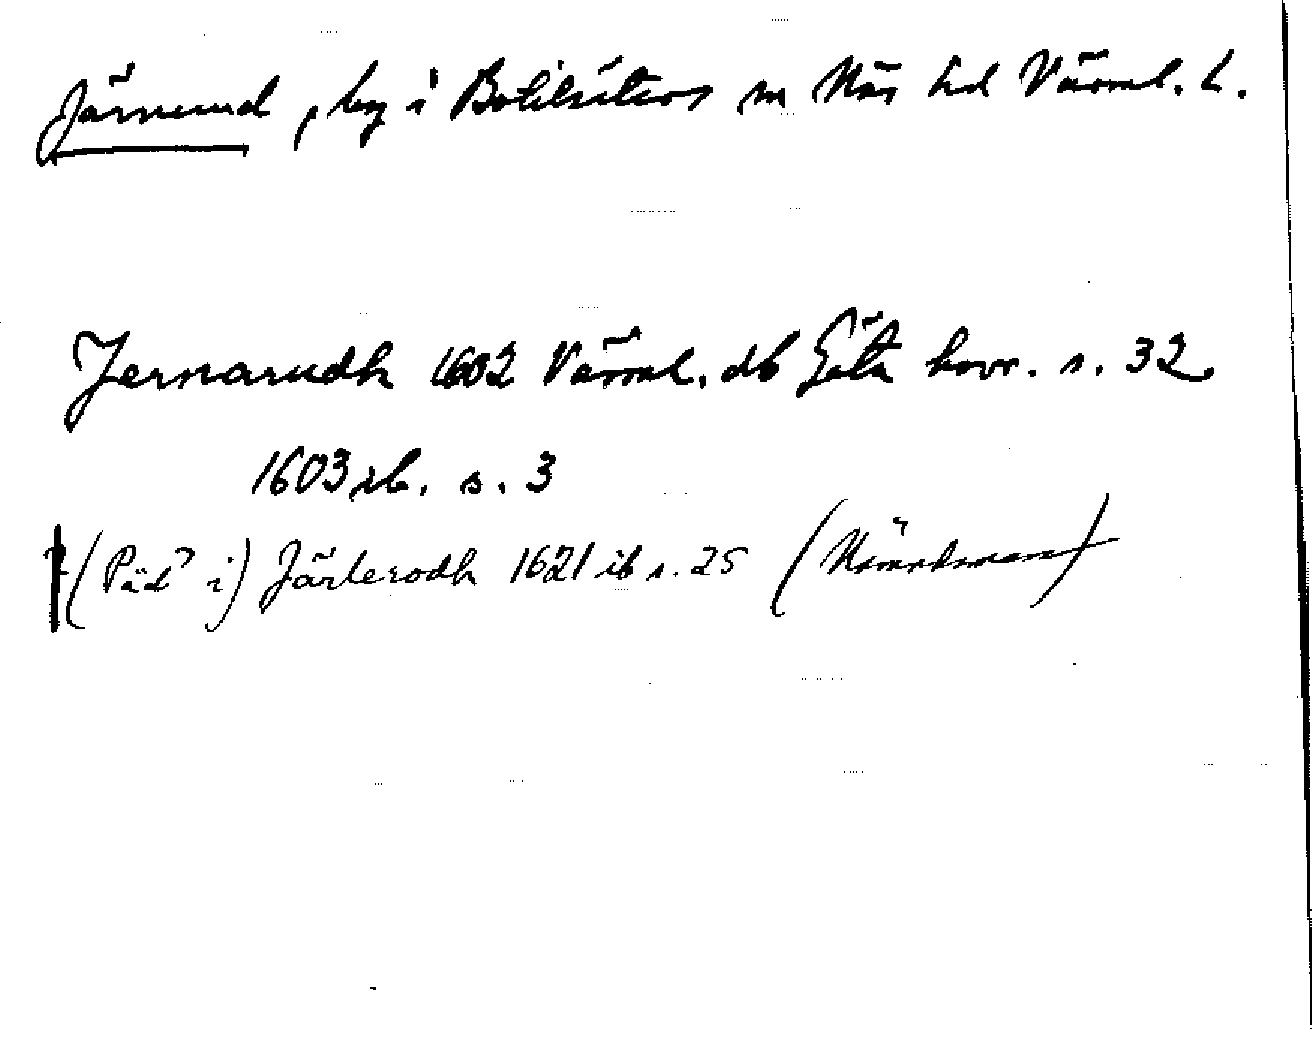 Järnrud, by i Botilsäters sn Näs hd Värml. l.
Jernarudh 1602 Värml. db Göta hovr. s. 32
1603 ib. s. 3
(Päd i) Järlerodh 1621 ib s. 25 (Nämndeman)